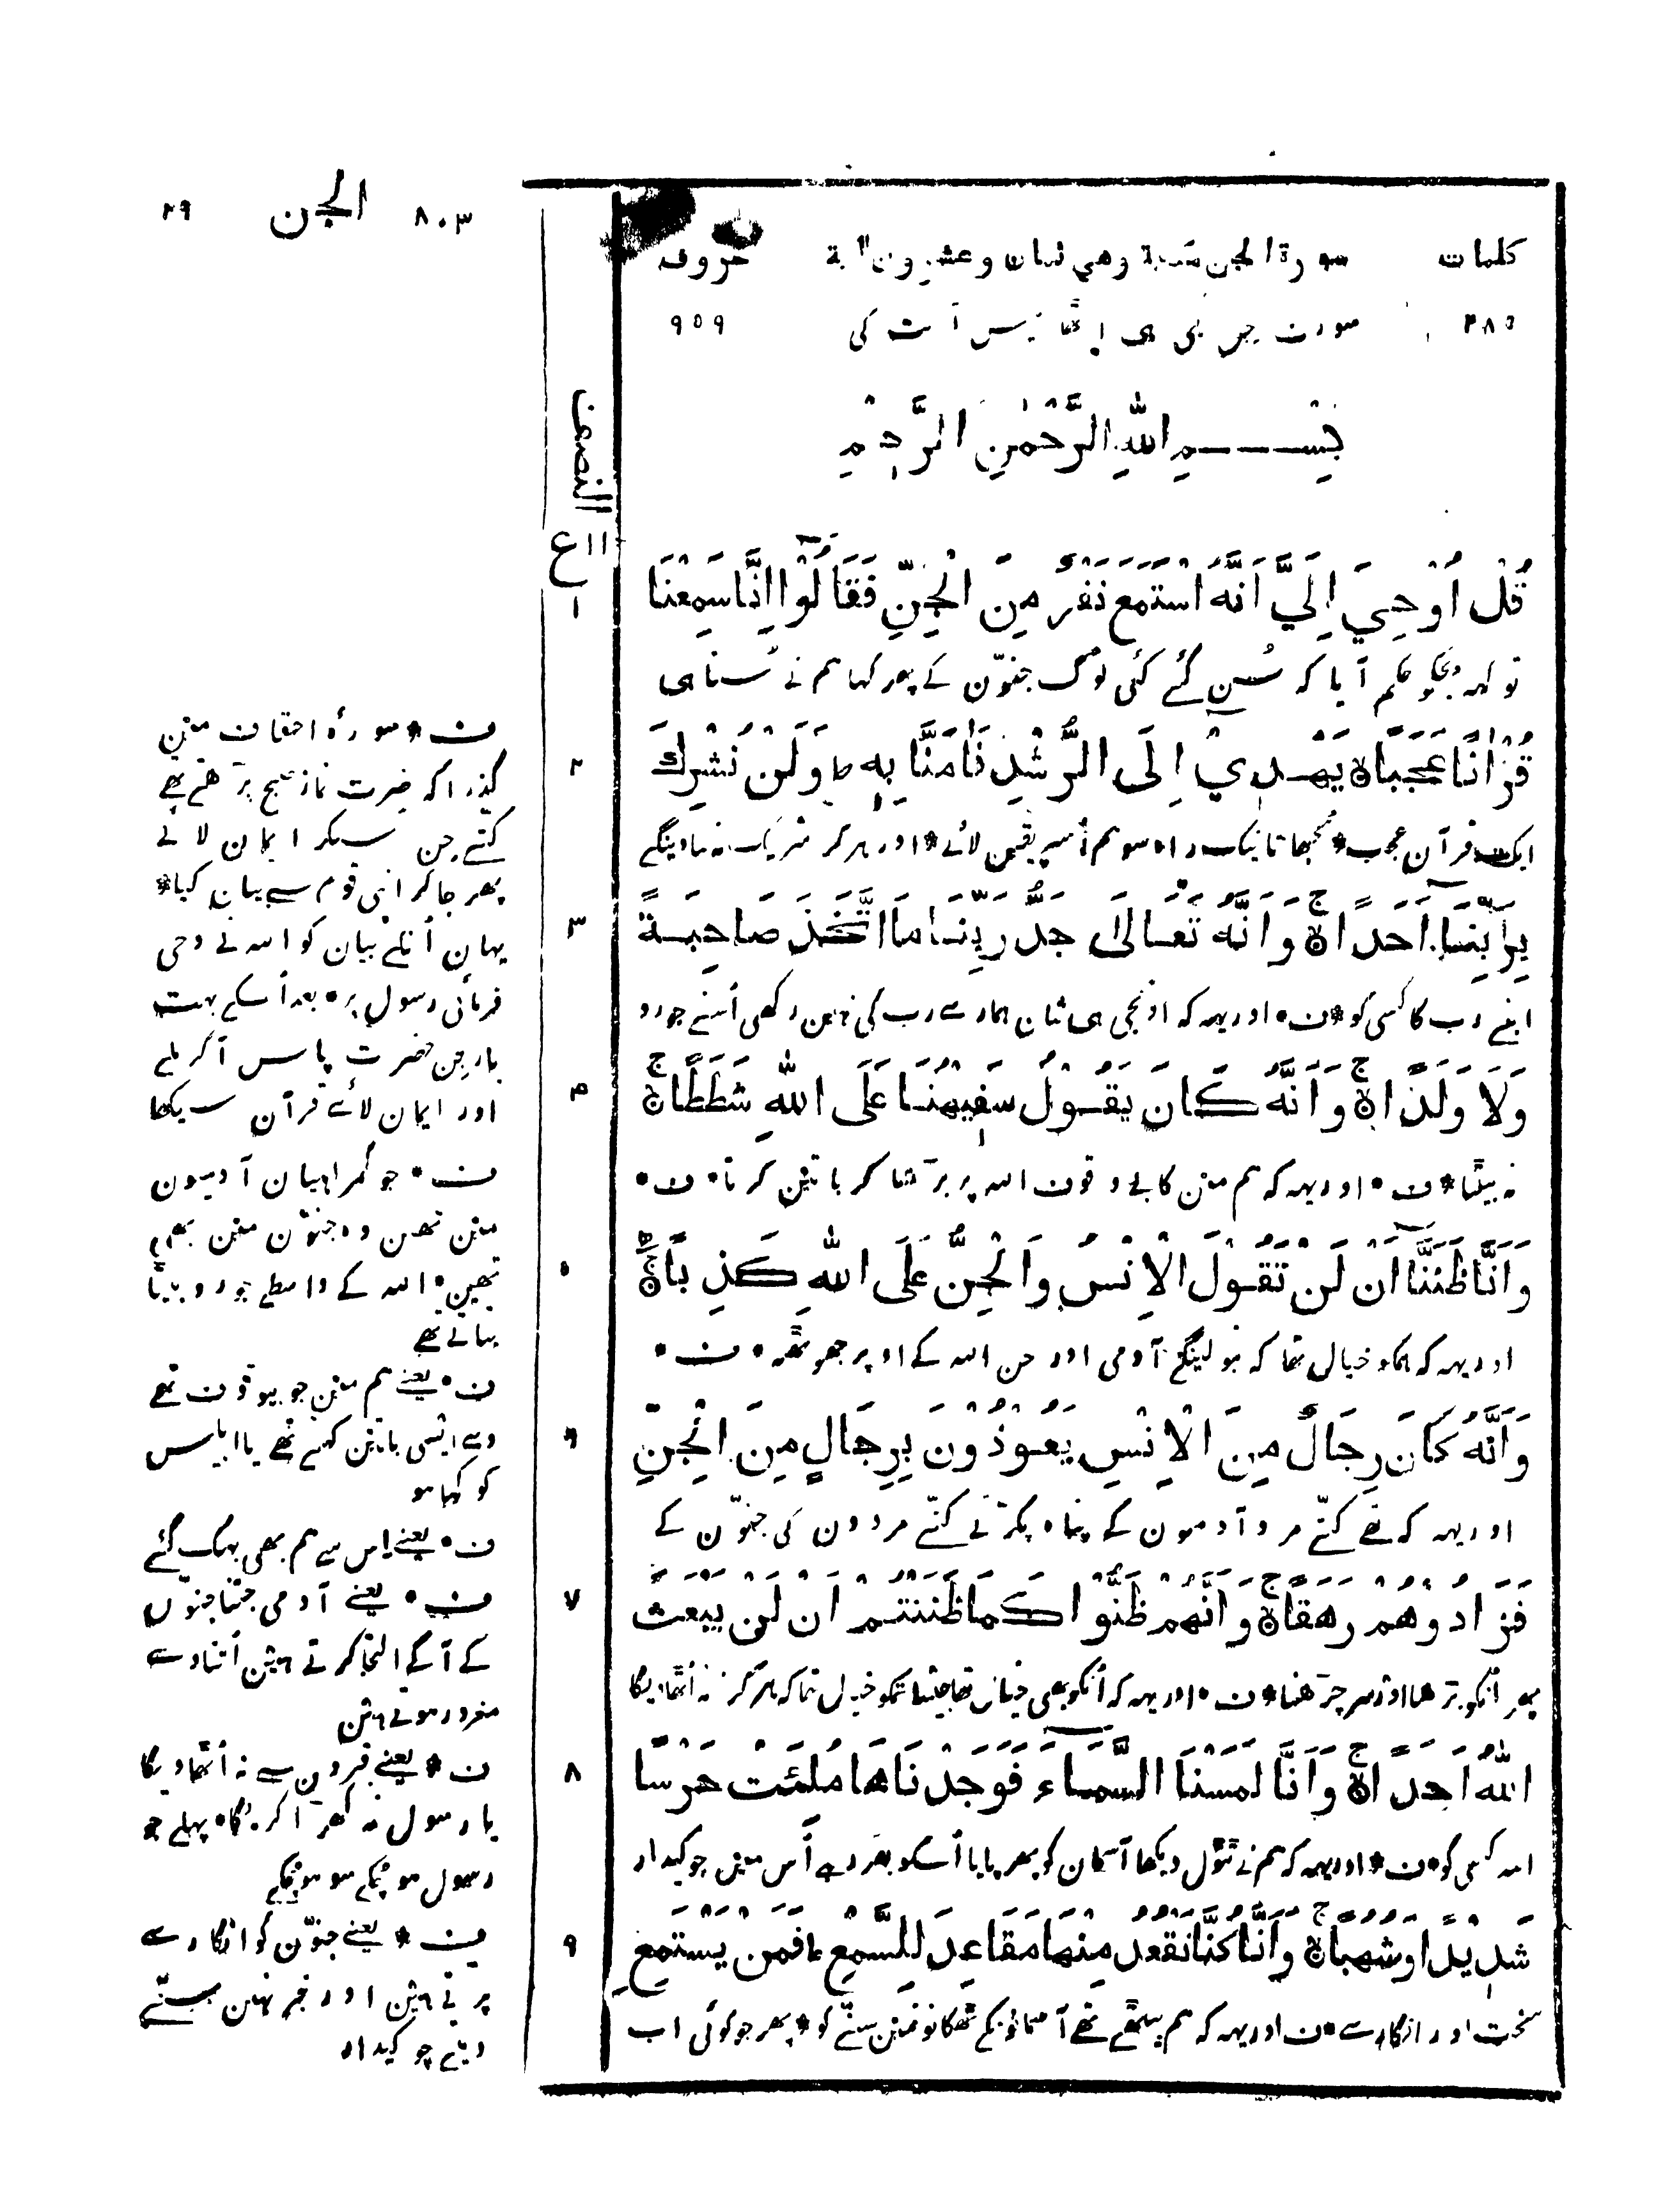 ٨٠٣ الجن ٢٩
کلمات سورة الجن مکیة وهي ثمان وعشرون آیة حروف
٢٨٥ سورت جن مکی هی اٹھائیس آیت کی ٩٥٩
بِسْمِ اللّٰهِ الرَّحْمٰنِ الرَّحِیْمِ
النصف
ع ١١
١
قُلْ اُوْحِيَ اِلَيَّ اَنَّهُ اسْتَمَعَ نَفَرٌ مِنَ الْجِنِّ فَقَالُوْا اِنَّا سَمِعْنَا
تو کهه مجکو حکم آیا که سُن گئے کئی لوگ جنوّن کے پهر کها هم نے سُنا هی
قُرْاٰنًا عَجَبًا ۙ یَهْدِيْ اِلَی الرُّشْدِ فَاٰمَنَّا بِهٖ ط وَلَنْ نُشْرِكَ ٢
ایک قرآن عجب * سُجهاتا نیک راه سو هم اُسپر یقین لائے * اور هرگز شریک نه بناوینگے
بِرَبِّنَا اَحَدًا ۙ وَاَنَّهُ تَعَالٰی جَدُّ رَبِّنَا مَا اتَّخَذَ صَاحِبَةً ٣
اپنے رب کا کسی کو * ف • اور یهه که اونچی هی شان همارے رب کی نهین رکهی اُسنے جورو
وَلَا وَلَدًا ۙ وَاَنَّهُ كَانَ یَقُوْلُ سَفِیْهُنَا عَلَی اللّٰهِ شَطَطًا ۙ ٤
نه بیٹا * ف • اور یهه که هم مین کا بے وقوف الله پر بڑها کر باتین کرتا • ف •
وَاَنَّا ظَنَنَّا اَنْ لَنْ تَقُوْلَ الْاِنْسُ وَالْجِنُّ عَلَی اللّٰهِ كَذِبًا ۙ ٥
اور یهه که همکو خیال تها که نبولینگے آدمی اور جن الله کے اوپر جهوٹهه • ف •
وَاَنَّهُ كَانَ رِجَالٌ مِنَ الْاِنْسِ یَعُوْذُوْنَ بِرِجَالٍ مِنَ الْجِنِّ ٦
اور یهه که تهے کتّے مرد آدمون کے پناه پکڑتے کتّے مردون کی جنّون کے
فَزَادُوْهُمْ رَهَقًا ۙ وَاَنَّهُمْ ظَنُّوْا كَمَا ظَنَنْتُمْ اَنْ لَنْ یَبْعَثَ ٧
پهر اُنکو بڑها اور سر چڑهنا * ف • اور یهه که اُنکو بهی خیال تها جیسا تمکو خیال تها که هرگز نه اُٹهاویگا
اللّٰهُ اَحَدًا ۙ وَاَنَّا لَمَسْنَا السَّمَآءَ فَوَجَدْنَاهَا مُلِئَتْ حَرَسًا ٨
الله کسی کو • ف * اور یهه که هم نے ٹٹول دیکها آسمان کو پهر پایا اُسکو بهر رهے اُس مین چوکیدار
شَدِیْدًا وَشُهُبًا ۙ وَاَنَّا كُنَّا نَقْعُدُ مِنْهَا مَقَاعِدَ لِلسَّمْعِ ط فَمَنْ یَسْتَمِعِ ٩
سخت اور انگارے • ف اور یهه که هم بیٹهتے تهے آسمانونکے ٹهکانونمین سننّے کو * پهر جو کوئی اب
ف * سورۂ احقاف مین
گذرا که حضرت نماز صبح پڑهتے تهے
کتنے جن سنکر ایمان لائے
پهر جا کر اپنی قوم سے بیان کیا *
یهان اُنکے بیان کو الله نے وحی
فرمائی رسول پر • بعد اُسکے بهت
بار جن حضرت پاس آکر ملے
اور ایمان لائے قرآن سیکها
ف • جو گمراهیان آدمیون
مین تهین وه جنّون مین بهی
تهین • الله کے واسطے جورو بیٹا
بتاتے تهے
ف • یعنے هم مین جو بیوقوف تهے
وے ایسی باتین کهتے تهے یا ابلیس
کو کها هو
ف • یعنے اِس سے هم بهی بهک گئے
ف • یعنے آدمی جتنا جنّون
کے آگے التجا کرتے هین اُتنا وے
مغرور هوتے هین
ف * یعنے قبرون سے نه اُٹهاویگا
یا رسول نه کهڑا کریگا • پهلے جو
رسول هو چُکے سو هو چُکے
ف * یعنے جنّون کو انگارے
پڑتے هین اور خبر نهین سننّے
دیتے چوکیدار